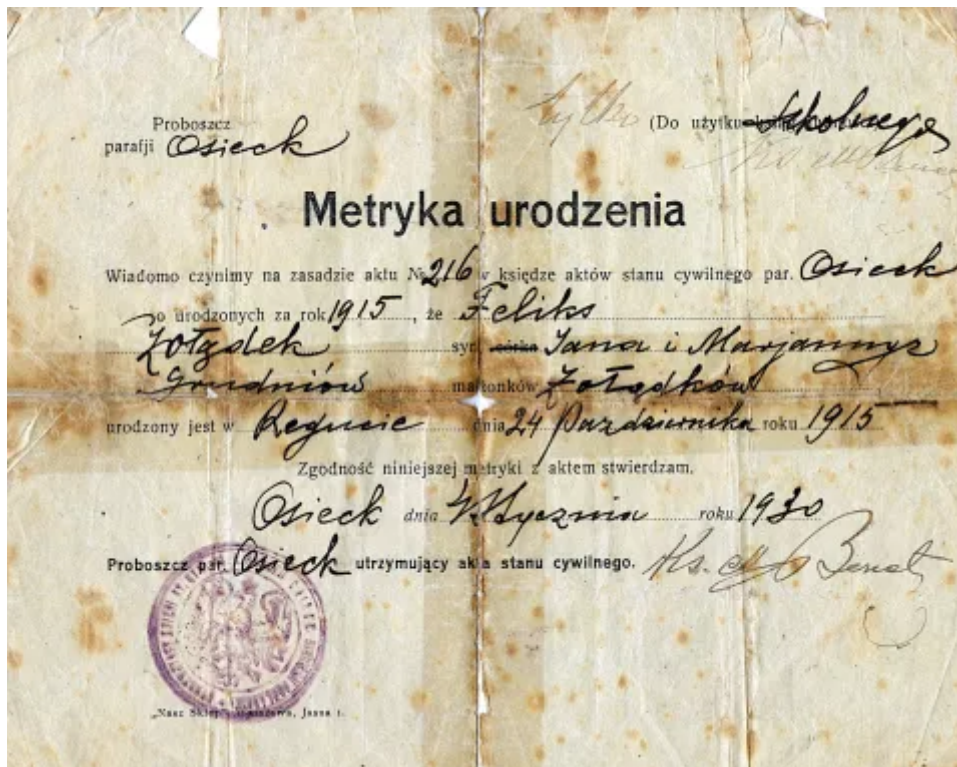 Proboszcz
parafji Osieck
tylko (Do użytku szkolnego
Metryka urodzenia
Wiadomo czynimy na zasadzie aktu № 216 w księdze aktów stanu cywilnego par. Osieck
o urodzonych za rok 1915, że Feliks
Żołądek syn, córka Jana i Marjanny z
Grudniów małżonków Żołądków
urodzony jest w Regucie dnia 24 Października roku 1915
Zgodność niniejszej metryki z aktem stwierdzam.
Osieck dnia 4 Stycznia roku 1930
Proboszcz par. Osieck utrzymujący akta stanu cywilnego. Ks.
„Nasz Sklep” Warszawa, Jasna 1.